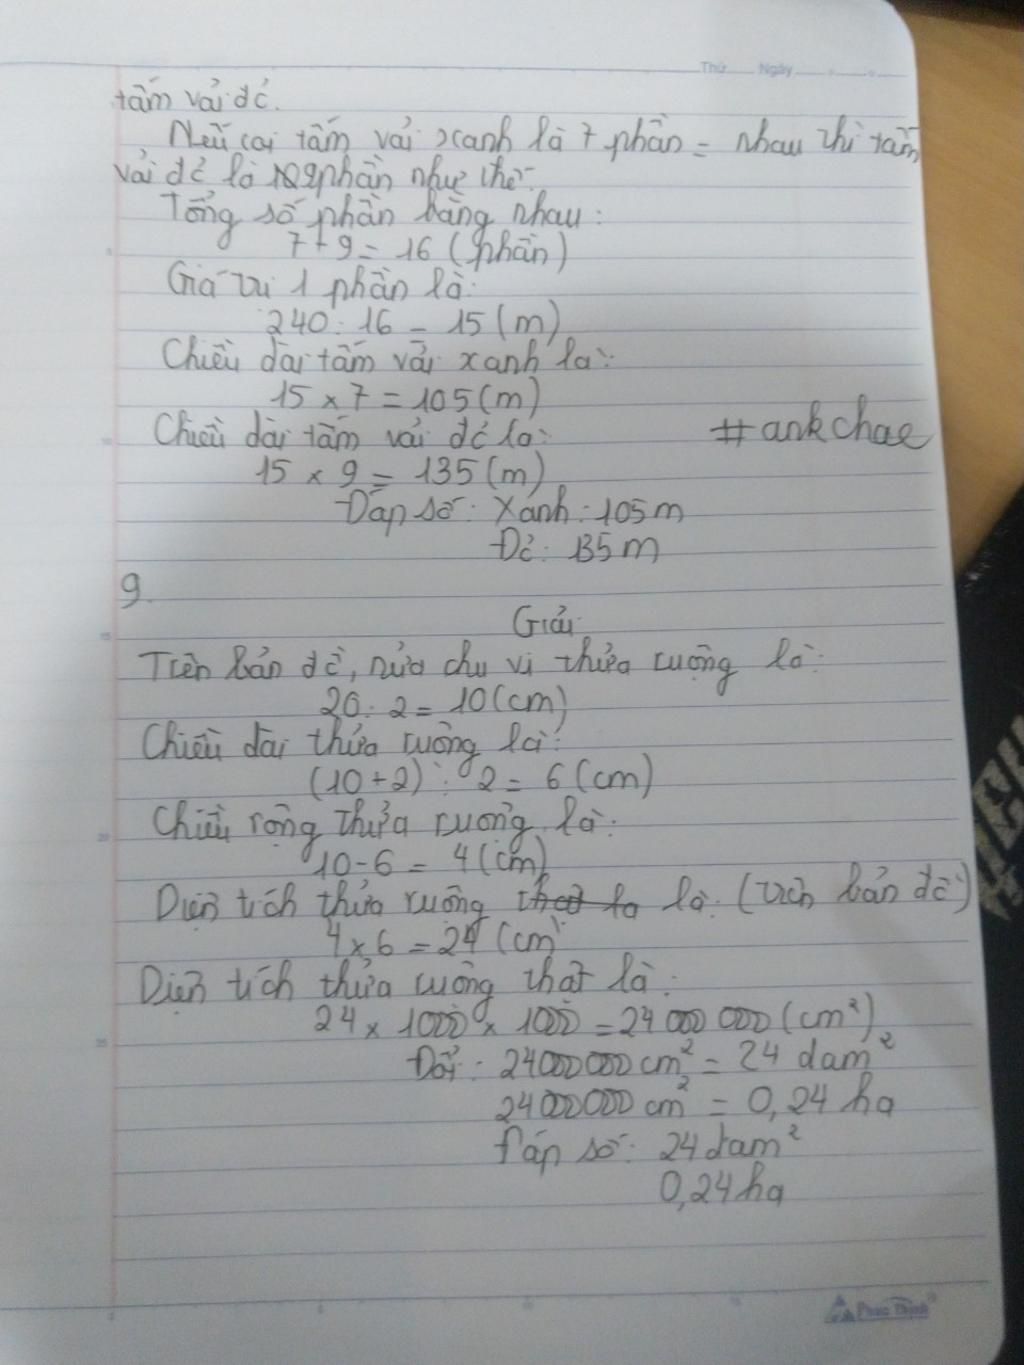 Thứ Ngày
tấm vải đỏ.
Nếu coi tấm vải xanh là 7 phần = nhau thì tấm
vải đỏ là 9 phần như thế.
Tổng số phần bằng nhau:
7 + 9 = 16 (phần)
Giá trị 1 phần là:
240 : 16 = 15 (m)
Chiều dài tấm vải xanh là:
15 x 7 = 105 (m)
Chiều dài tấm vải đỏ là:
#ankchae
15 x 9 = 135 (m)
Đáp số: Xanh: 105m
Đỏ: 135m
9.
Giải
Trên bản đồ, nửa chu vi thửa ruộng là:
20 : 2 = 10 (cm)
Chiều dài thửa ruộng là:
(10 + 2) : 2 = 6 (cm)
Chiều rộng thửa ruộng là:
10 - 6 = 4 (cm)
Diện tích thửa ruộng là: (trên bản đồ)
4 x 6 = 24 (cm²)
Diện tích thửa ruộng thật là:
24 x 1000 x 1000 = 24 000 000 (cm²)
Đổi: 24000000 cm² = 24 dam²
24000000 cm² = 0,24 ha
Đáp số: 24 dam²
0,24 ha
Phuc Thinh